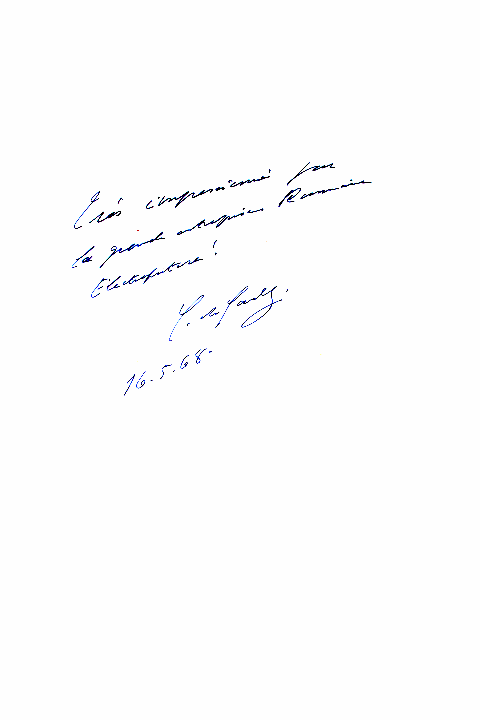 Très impressionné par
la grande entreprise Roumaine
Electroputere !
C. de Gaulle.
16.5.68.